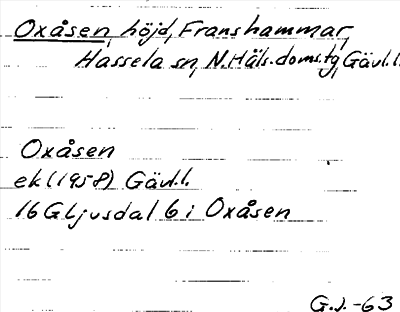 Oxåsen, höjd, Franshammar,
Hassela sn, N. Häls. doms. tg, Gävl.l.
Oxåsen
ek (1958) Gävl.l.
16G Ljusdal 6 i Oxåsen
G.J. -63